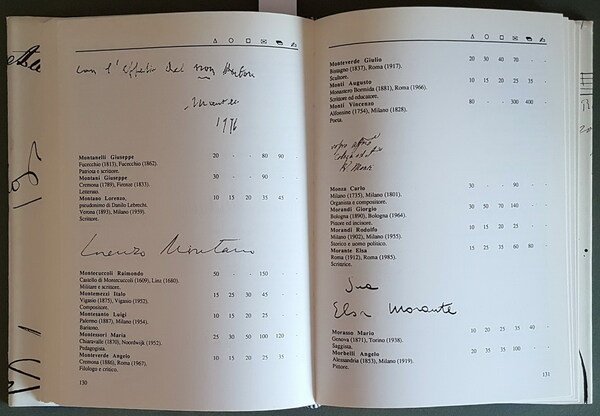 Montanelli Giuseppe 20 - - 80 90 -
Fucecchio (1813), Fucecchio (1862).
Patriota e scrittore.
Montani Giuseppe 30 - - 90 - -
Cremona (1789), Firenze (1833).
Letterato.
Montano Lorenzo, 10 15 20 35 45 -
pseudonimo di Danilo Lebrecht.
Verona (1893), Milano (1959).
Scrittore.
Lorenzo Montano
Montecuccoli Raimondo 50 - - 150 - -
Castello di Montecuccoli (1609), Linz (1680).
Militare e scrittore.
Montemezzi Italo 15 25 30 45 - -
Vigasio (1875), Vigasio (1952).
Compositore.
Montesanto Luigi 10 15 20 25 - -
Palermo (1887), Milano (1954).
Baritono.
Montessori Maria 25 30 50 100 120 -
Chiaravalle (1870), Noordwijk (1952).
Pedagogista.
Monteverde Angelo 10 15 20 25 35 -
Cremona (1886), Roma (1967).
Filologo e critico.
130
Monteverde Giulio 20 30 40 70 - -
Bistagno (1837), Roma (1917).
Scultore.
Monti Augusto 10 15 20 25 35
Monastero Bormida (1881), Roma (1966).
Scrittore ed educatore.
Monti Vincenzo 80 - - 300 400
Alfonsine (1754), Milano (1828).
Poeta.
Monza Carlo 30 - - 90 -
Milano (1735), Milano (1801).
Organista e compositore.
Morandi Giorgio 30 50 70 140 -
Bologna (1890), Bologna (1964).
Pittore ed incisore.
Morandi Rodolfo 10 15 20 25 -
Milano (1902), Milano (1955).
Storico e uomo politico.
Morante Elsa 15 25 35 60 80 -
Roma (1912), Roma (1985).
Scrittrice.
Sua
Elsa Morante
Morasso Mario 10 20 25 35 40 -
Genova (1871), Torino (1938).
Saggista.
Morbelli Angelo 20 35 35 100 - -
Alessandria (1853), Milano (1919).
Pittore.
131